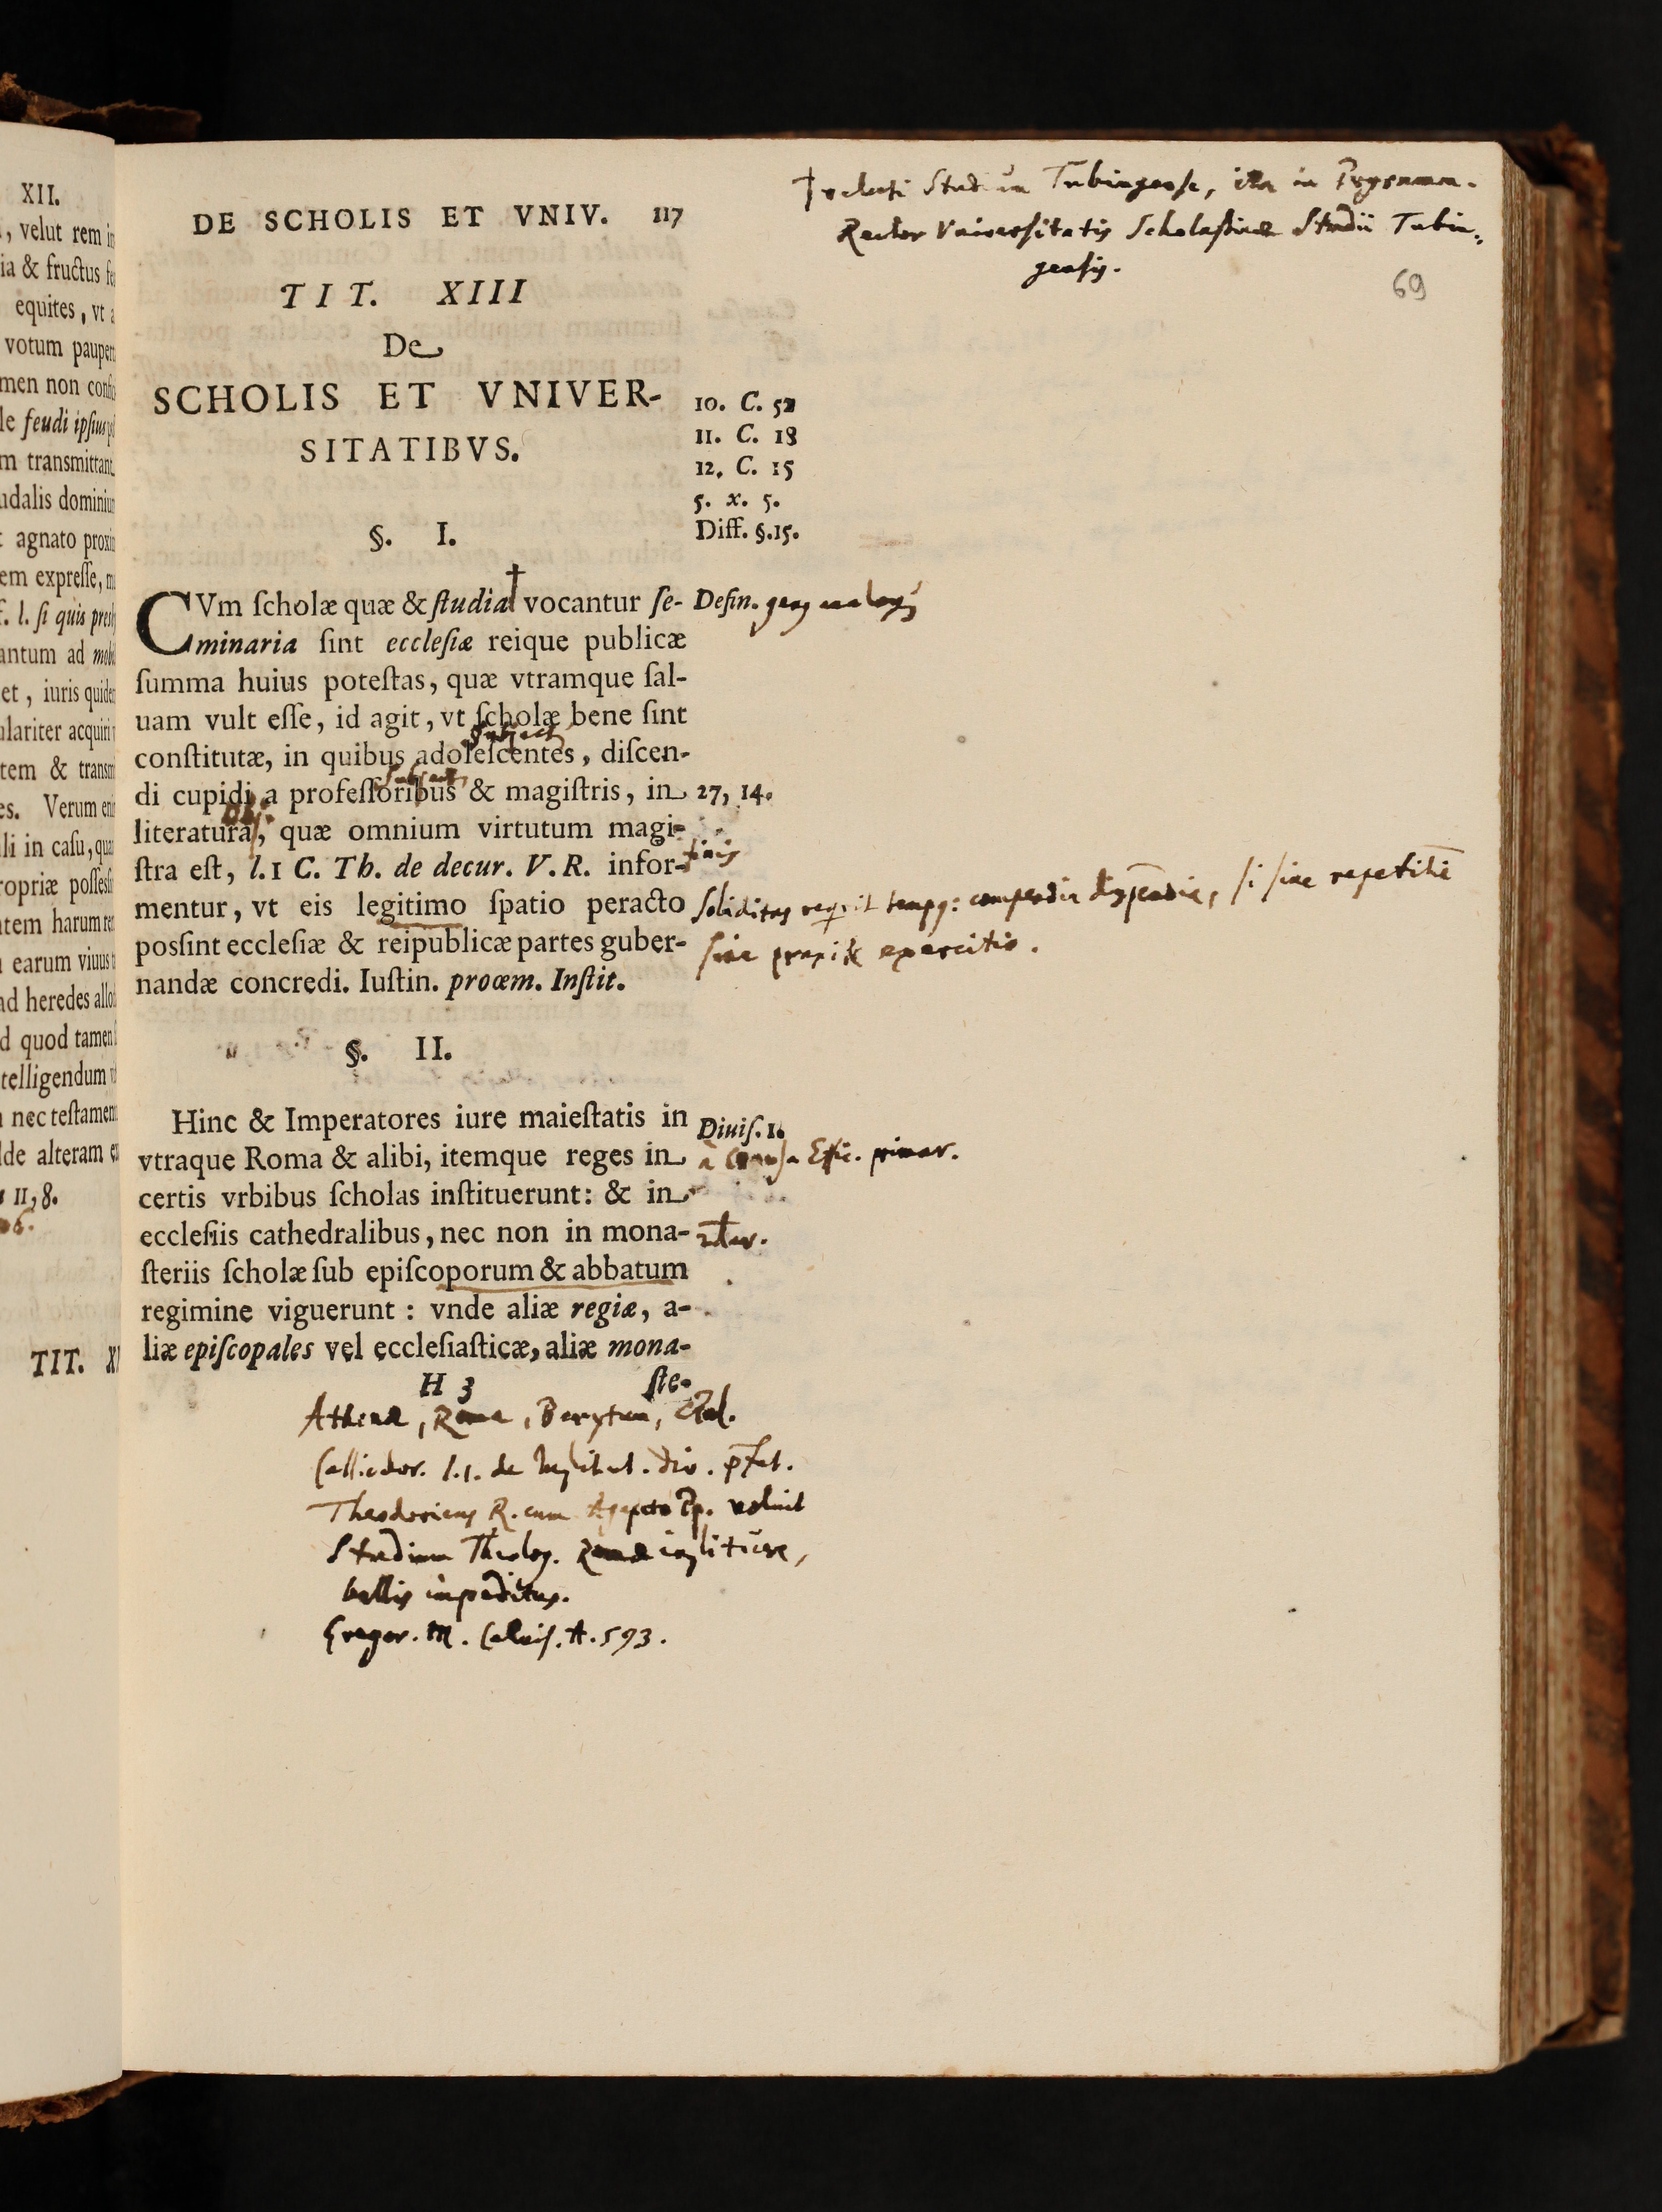 XII.
, velut rem in
ia & fructus
equites, vt a
votum paupert
men non
le feudi ipſius
m transmittant
udalis dominium
agnato proxi
em expreſſe,
l. ſi quis
antum ad
et, iuris quidem
ulariter acquiri
tem & transm
es. Verum
li in caſu, qua
ropriæ poſſeſſ
tem harum
earum viuus
ad heredes
d quod tamen
telligendum
nec teſtamen
de alteram
II, 8.
TIT.
DE SCHOLIS ET VNIV. 117
† Studium Tubingense, ita in
Rector Vniversitatis Scholasticæ Studii Tubin-
gensis.
69
TIT. XIII
De
SCHOLIS ET VNIVER-
SITATIBVS.
10. C. 52
11. C. 18
12. C. 15
5. x. 5.
Diff. §. 15.
§. I.
†
CVm ſcholæ quæ & ſtudia vocantur ſe-
Defin.
minaria ſint eccleſiæ reique publicæ
ſumma huius poteſtas, quæ vtramque ſal-
uam vult eſſe, id agit, vt ſcholæ bene ſint
Subject
conſtitutæ, in quibus adoleſcentes, diſcen-
di cupidi a profeſſoribus & magiſtris, in
27, 14.
Obj.
literatura, quæ omnium virtutum magi-
ſtra eſt, l. 1 C. Th. de decur. V. R. infor-
finis
mentur, vt eis legitimo ſpatio peracto
soliditas requirit tempus: compendia dispendia, si sine repetitione
poſsint eccleſiæ & reipublicæ partes guber-
sine praxi & exercitio.
nandæ concredi. Iuſtin. proœm. Inſtit.
§. II.
Hinc & Imperatores iure maieſtatis in
Diuiſ. 1.
vtraque Roma & alibi, itemque reges in
à Causa Effic. primar.
certis vrbibus ſcholas inſtituerunt: & in
eccleſiis cathedralibus, nec non in mona-
ſteriis ſcholæ ſub epiſcoporum & abbatum
regimine viguerunt: vnde aliæ regiæ, a-
liæ epiſcopales vel eccleſiaſticæ, aliæ mona-
H 3 ſte-
Athenæ, Roma, Berytum,
Cassiodor. l. 1. de Institut. div. præfat.
Theodoricus R. cum Agapeto Pp. voluit
Studium Theolog. Romæ instituere,
bellis impeditus.
Gregor. M. Calvis. A. 593.